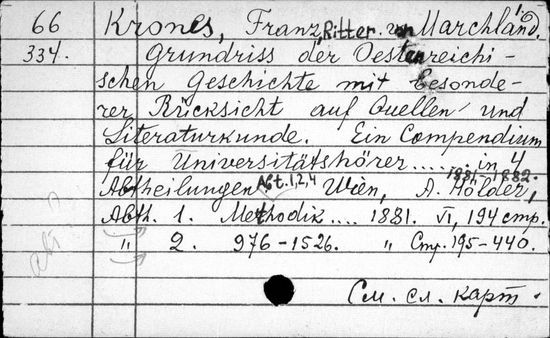 66 Krones, Franz, Ritter von Marchland.
334. Grundriss der Oesterreichi-
schen Geschichte mit besonde-
rer Rücksicht auf Quellen- und
Literaturkunde. Ein Compendium
für Universitätshörer ..... in 4
Abtheilungen Abt. 1, 2, 4 Wien, A. Hölder, 1881-1882.
Abth. 1. Methodik .... 1881. VI, 194 стр.
" 2. 976-1526. " Стр. 195-440.
См. сл. карт.